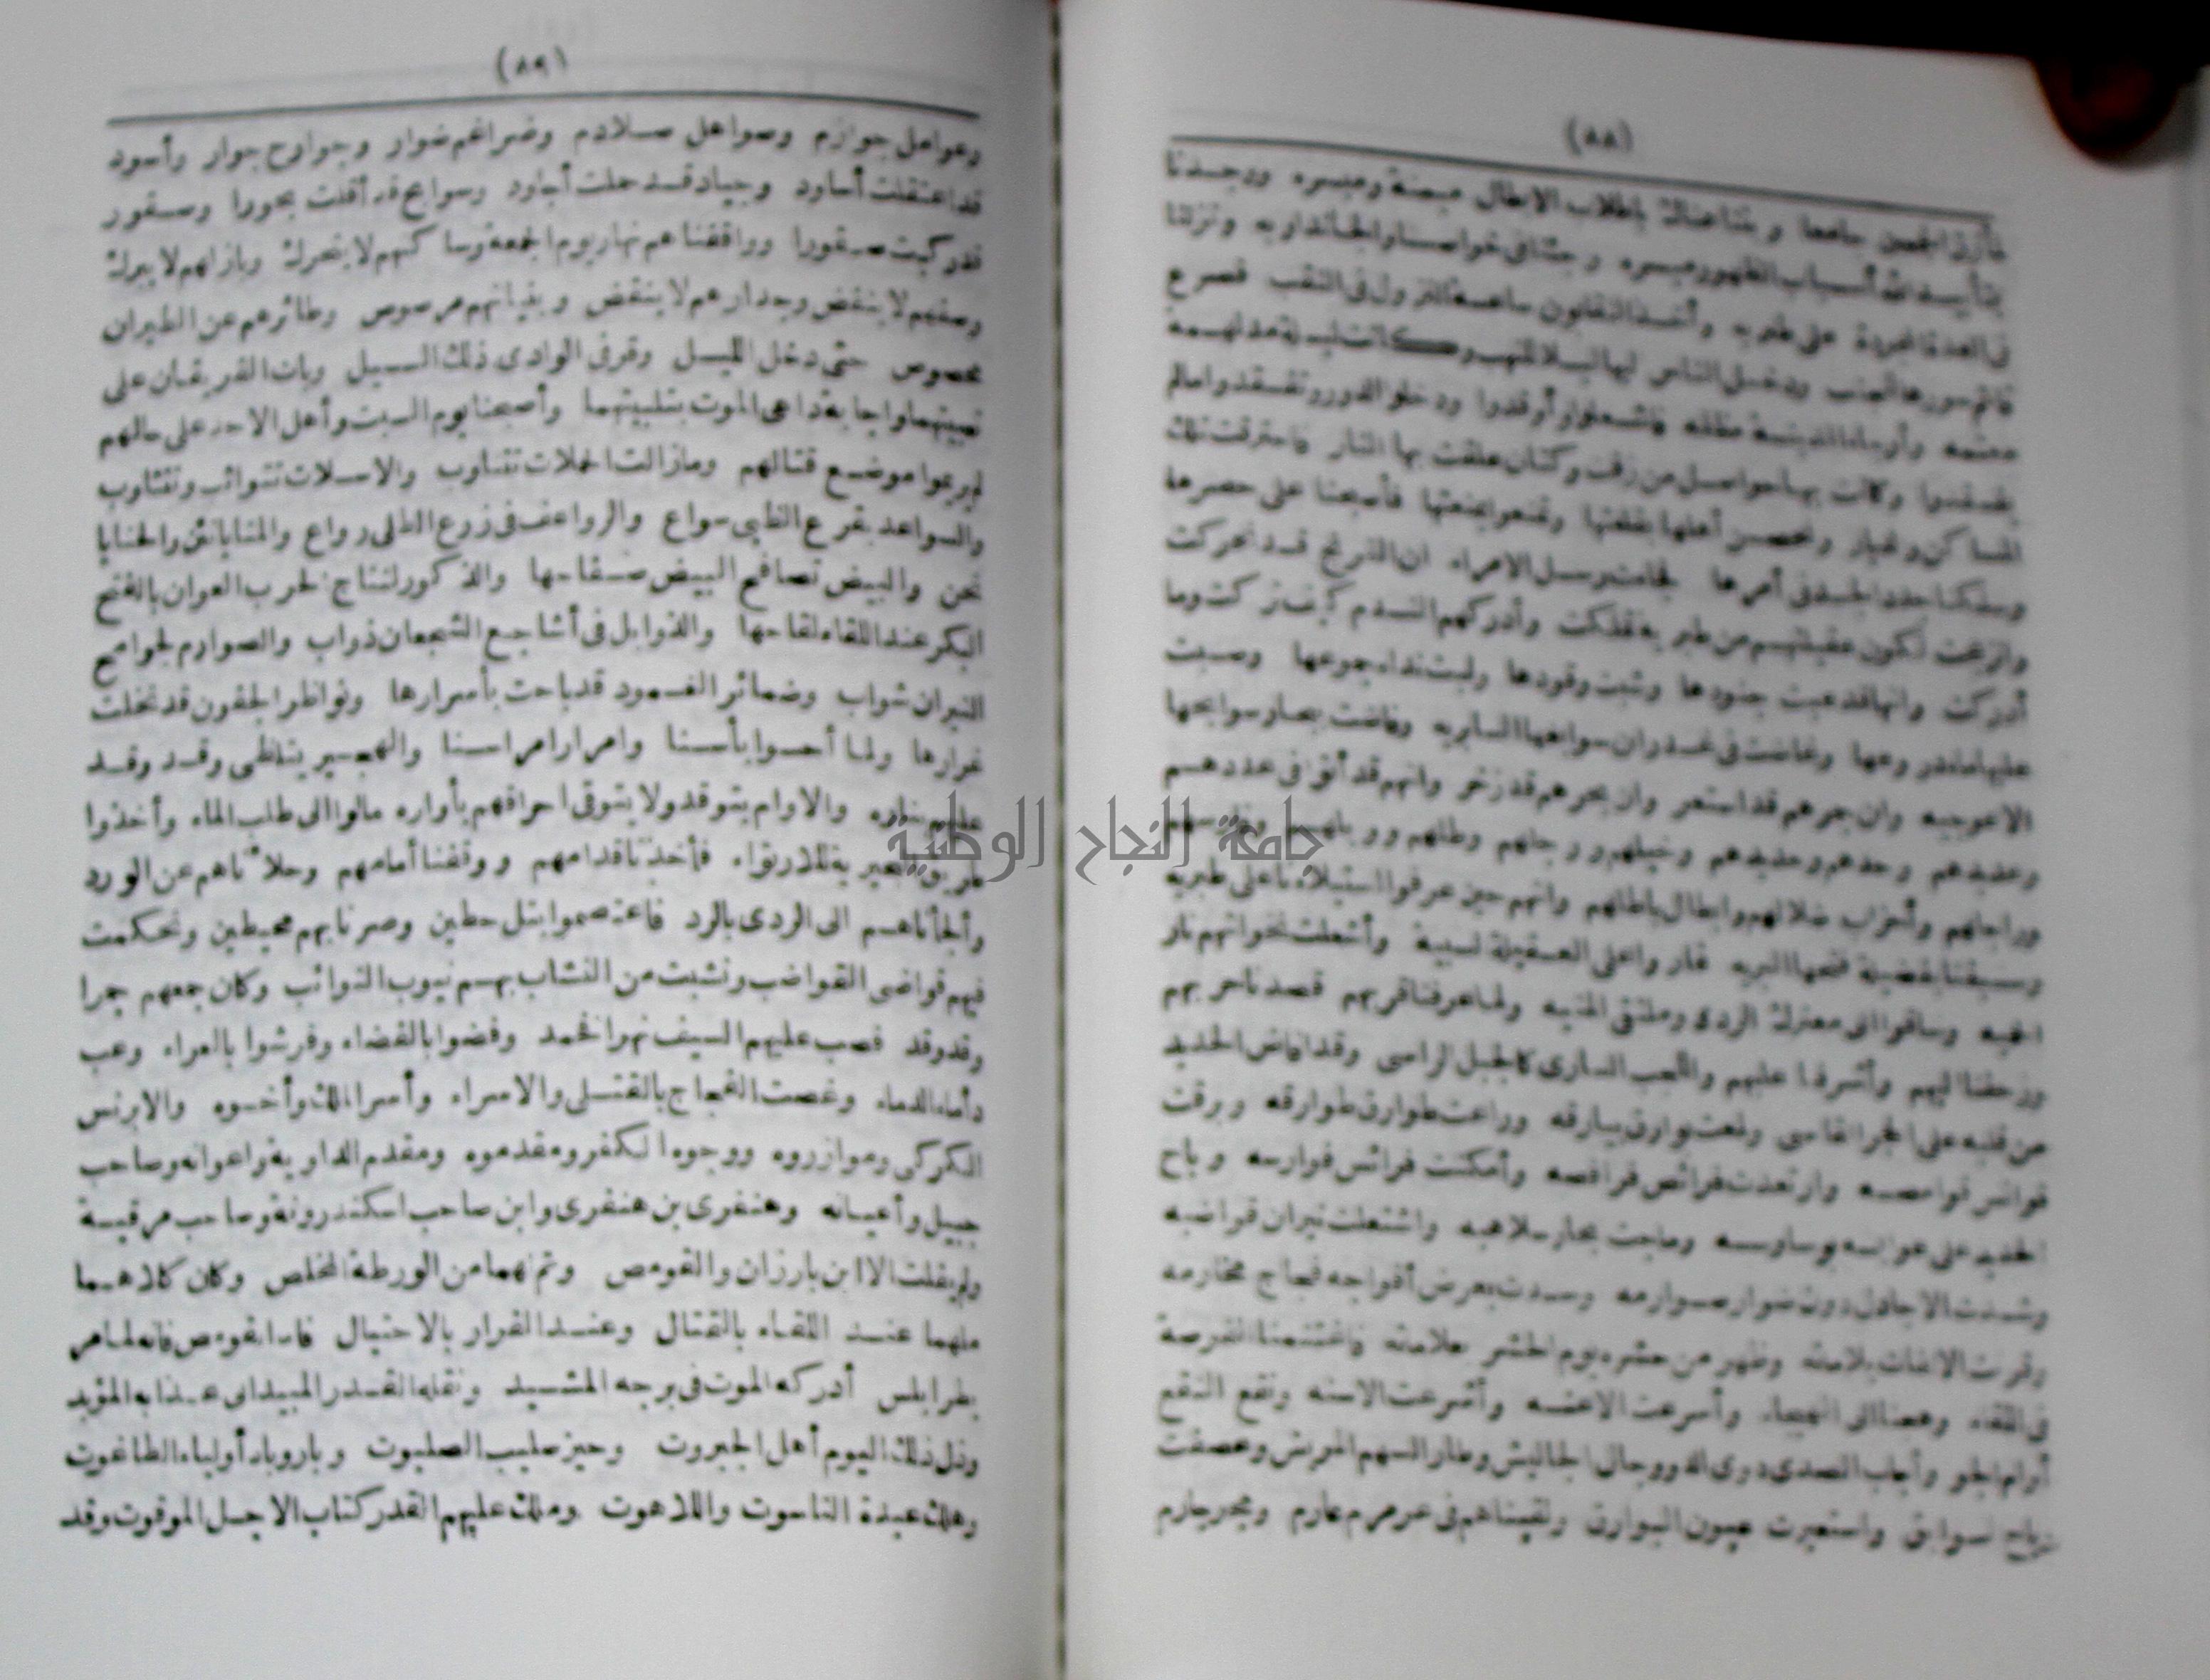 (٨٨)
وبتنا هناك باطلاب الابطال ميمنة وميسره ووجدنا
بتأييد الله أسباب الظهور ميسره وجئنا في خواصنا والجانداريه ونزلنا
في العدة المجردة على طبريه وأخذ النقابون ساعة النزول في النقب فصرع
ودخل الناس اليها ليلا للنهب وكانت ليلة مدلهمة
معتمه مظلمه فاشعلوا وأوقدوا ودخلوا الدور وتفقدوا مالم
يفقدوا وكانت بها حواصل من زفت وكتان علقت بها النار فاحترقت تلك
المساكن وتحصن أهلها بقلعتها وتمنعوا بمنعتها فأصبحنا على حصرها
الجد في أمرها فجاءت رسل الامراء ان الفرنج قد تحركت
من طبرية وأدركهم الندم كيف تركت وما
أدركت وانها قد عبت جنودها وشبت وقودها ولبت نداء جموعها وصبت
عليها دروعها وخاضت في غدران سوابغها السابريه وفاضت بحار سوابحها
الاعوجيه وان جمرهم قد استعر وان بحرهم قد زخر وانهم قد أتوا في عددهم
وعديدهم وحدهم وحديدهم وخيلهم ورجلهم وطلهم ووبلهم
وأحزاب ضلالهم وابطال باطلهم وانهم حين عرفوا استيلاءنا على طبريه
وسبقنا بفضيلة فتحها البريه غاروا على العقيلة لسبية وأشعلت نخواتهم نار
الحميه وساقوا الى معترك الردى وملتقى المنيه ولما عرفنا قربهم قصدنا حربهم
وزحفنا اليهم وأشرفنا عليهم واللجب الساري كالجبل الراسي وقد افاض الحديد
من قلبه على الحجر القاسي ولمعت بوارق بيارقه وراعت طوارق طوارقه وبرقت
قوانس قوامصه وارتعدت فرائص فرائصه وأمكنت فرائس فوارسه وباح
الحديد على عوابسه بوساوسه وماجت بحار سلاهبه واشتعلت نيران قواضبه
وسدت بعرض أفواجه فجاج مخارمه
وظهر من حشره يوم الحشر بعلاماته فاغتنمنا الفرصة
في اللقاء وهمنا الى الهيجاء وأسرعت الاعنه وأشرعت الاسنه ونقع النقع
أوام الجو وأجاب الصدى دوي الدو وجال الجاليش وطار السهم المريش وعصفت
رياح السوابق واستعبرت عيون البوارق ولقيناهم في عرمرم عارم ومجر جارم
(٨٩)
وعوامل جوازم وصواهل صلادم وضراغم ضوار وجوارح جوار وأسود
قد اعتقلت أساود وجياد قد حملت أجاود وسوابح قد أقلت بحورا وصقور
قد ركبت صقورا وواقفناهم نهار يوم الجمعة وساكنهم لا يتحرك وبازلهم لا يبرك
وصفهم لا ينفض وجدارهم لا ينقض وبنيانهم مرصوص وطائرهم عن الطيران
محصوص حتى دخل الليل وقر في الوادي ذلك السيل وبات الفريقان على
تعبيتهما واجابة داعي الموت بتلبيتهما وأصبحنا يوم السبت وأهل الاحد على حالهم
لم يدعوا موضع قتالهم ومازالت الحملات تتناوب والاسلات تتواثب وتتثاوب
والسواعد بقرع الظبي سواع والرواعف في زرع الطلى رواع والمنايا تئن والحنايا
تحن والبيض تصافح البيض صفاحها والذكور لنتاج الحرب العوان بالفتح
البكر عند اللقاء لقاحها والذوابل في أشاجع الشجعان ذواب والصوارم لجوامح
النيران شواب وضمائر الغمود قد باحت بأسرارها ونواظر الجفون قد تخلت
غرارها ولما أحسوا بأسنا وامرار امراسنا والهجير يتلظى وقد وقد
عليهم بناره والاوام يتوقد ولا يتوقى احراقهم بأواره مالوا الى طلب الماء وأخذوا
طريق البحيرية للارتواء فأخذنا قدامهم ووقفنا أمامهم وحلأناهم عن الورد
وألجأناهم الى الردى بالرد فاعتصموا بتل حطين وصرنا بهم محيطين وتحكمت
فيهم قواضي القواضب ونشبت من النشاب بهم نيوب النوائب وكان جمعهم جمرا
وقد وقد فصب عليهم السيف نهرا فخمد وفضوا بالفضاء وفرشوا بالعراء وعب
دأماء الدماء وغصت الفجاج بالقتلى والاسراء وأسر الملك وأخوه والابرنس
الكركي وموازروه ووجوه الكفر ومقدموه ومقدم الداوية واعوانه وصاحب
جبيل وأعيانه وهنفري بن هنفري وابن صاحب اسكندرونة وصاحب مرقية
ولم يفلت الا ابن بارزان والقومص وتم لهما من الورطة المخلص وكان كلاهما
ملهما عند اللقاء بالقتال وعند الفرار بالاحتيال فاما القومص فانه لما مر
بطرابلس أدركه الموت في برجه المشيد ونقله القدر المبيد الى عذابه المؤبد
وذل ذلك اليوم أهل الجبروت وحيز صليب الصلبوت وبار وباد أولياء الطاغوت
وهلك عبدة الناسوت واللاهوت وملك عليهم القدر كتاب الاجل الموقوت وقد
جامعة النجاح الوطنية